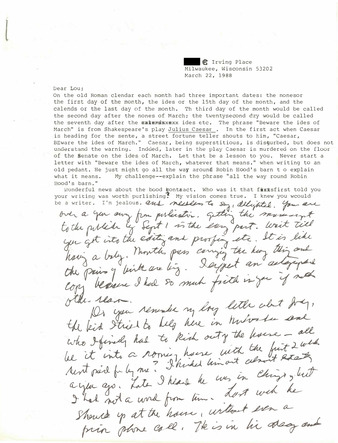 Irving Place
Milwaukee, Wisconsin 53202
March 22, 1988
Dear Lou;
On the old Roman clendar each month had three important dates: the nones or
the first day of the month, the ides or the 15th day of the month, and the
calends or the last day of the month. Th third day of the month would be called
the second day after the nones of March; the twentysecond day would be called
the seventh day after the ides etc. The phrase "Beware the ides of
March" is from Shakespeare's play Julius Caesar. In the first act when Caesar
is heading for the sente, a street fortune teller shouts to him, "Caesar,
BEware the ides of March." Caesar, being superstitious, is disturbed, but does not
understand the warning. Indeed, later in the play Caesar is murdered on the floor
of the Senate on the ides of March. Let that be a lesson to you. Never start a
letter with "Beware the ides of March, whatever that means," when writing to an
old pedant. He just might go all the way around Robin Hood's barn t o explain
what it means. My challenge--explain the phrase "all the way round Robin
Hood's barn."
Wonderful news about the book contract. Who was it that first told you
your writing was worth purlishing? My vision comes true. I knew you would
be a writer. I'm jealous. and needless to say, delighted. You are
over a year away from publication. getting the manuscript
to the publisher by Sept 1 is the easy part. Wait till
you get into the editing and proofing etc. It is like
having a baby. Months pass carrying the heavy thing and
the pains of birth are big. I expect an autographed
copy because I had so much faith in you if no
other reason.
Do you remember my long letter about
the kid I tried to help here in Milwaukee and
who I finally had to kick out of the house — all
be it into a rooming house with the first 2 weeks
rent paid for by me? I kicked him out almost exactly
a year ago. Later I heard he was in Chicago, but
I had not a word from him. Last week he
showed up at the house, without even a
prior phone call. He is in his and